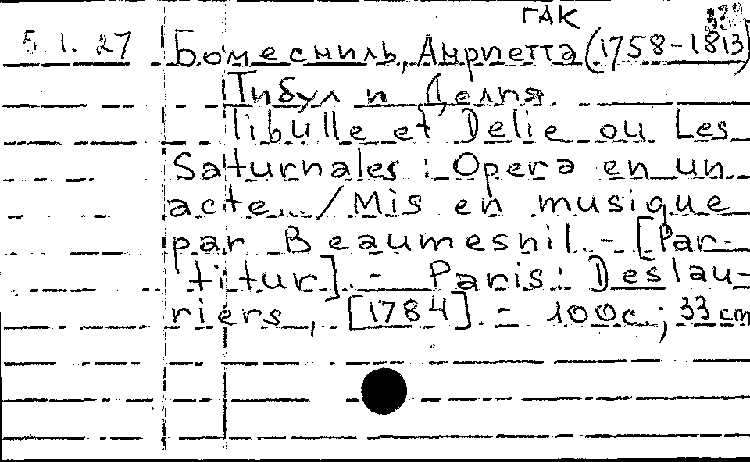 ГАК
5.1.27 Бомесниль, Анриетта (1758-1813)
Тибул и Делия
Tibulle et Delie ou Les
Saturnales : Opera en un
acte. / Mis en musique
par Beaumesnil. - [Par-
titur]. - Paris: Deslau-
riers, [1784]. - 100c; 33 cm